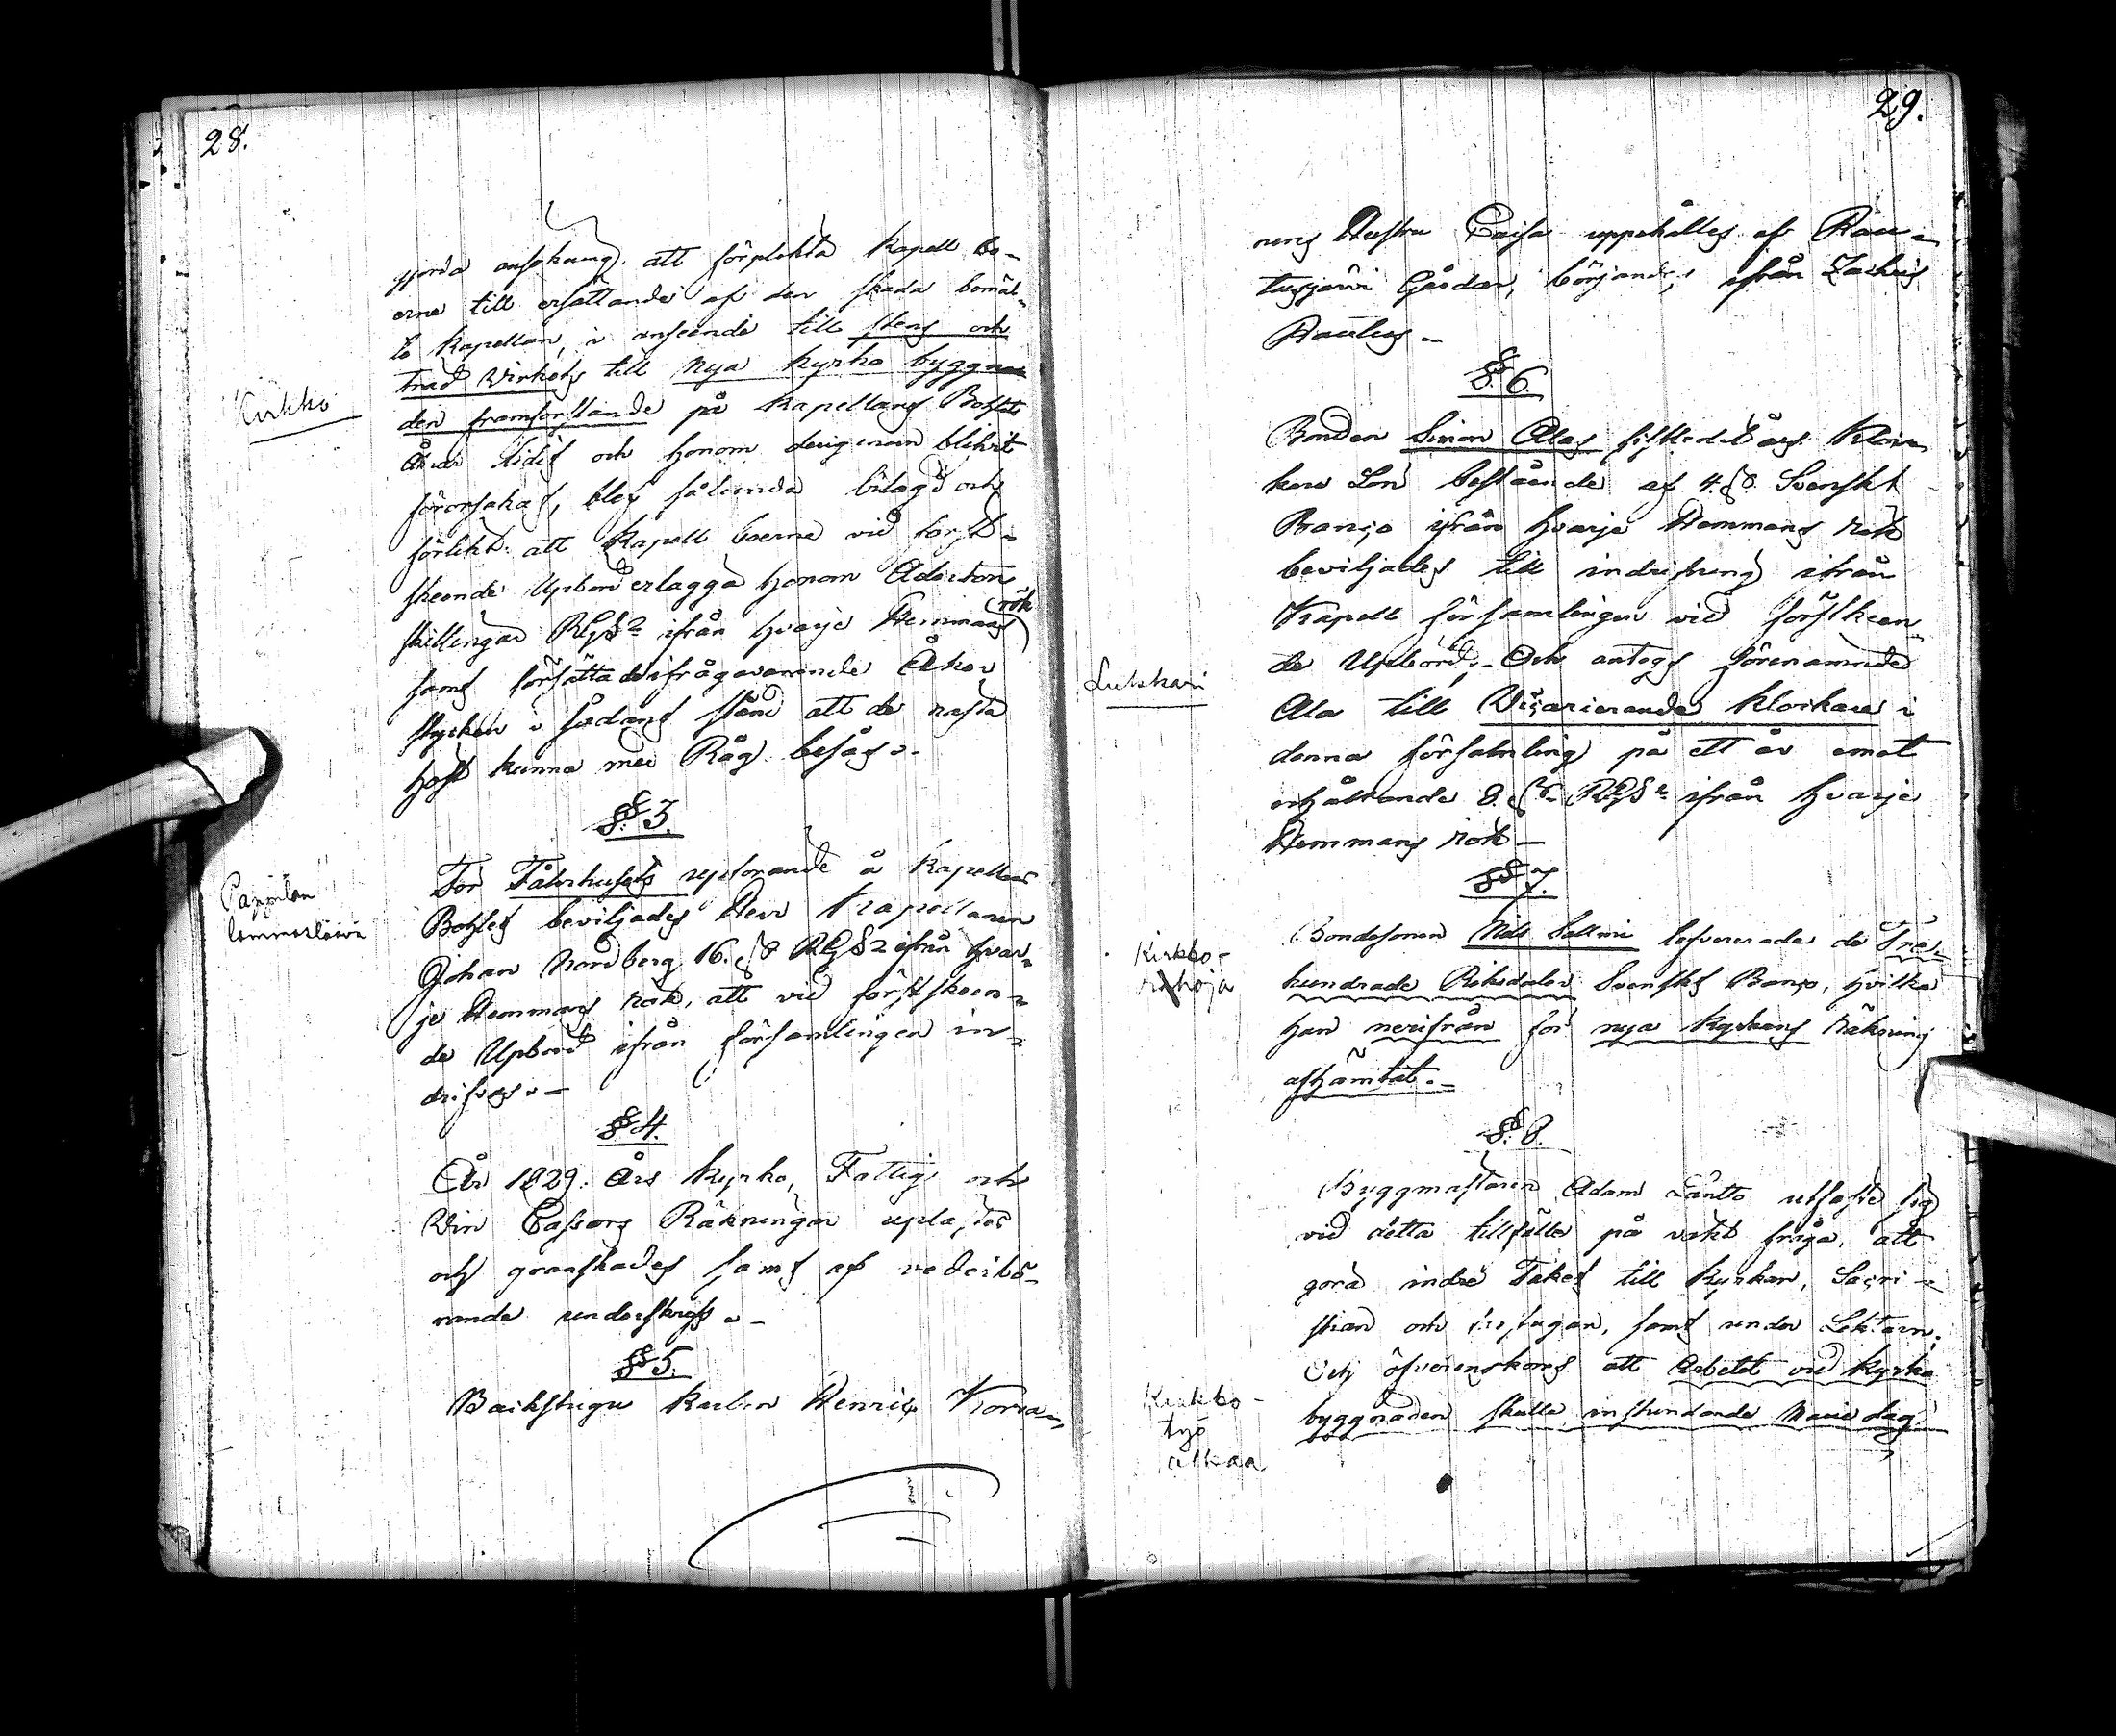 28.
gjorda ansökung. att förplikta Kapell bo-
erne till ersättande af den skada bemäl-
te Kapellan, i anseende till stens och
träd Virkets till nya kyrko byggna
den framforslande på Kapellans Bohls
Åker lidit och honom derigenom blifvit
förorsakat, blef sålunda bilagd och
förlikt: att Kapell boerne vid först-
skeende Upbörd erlägga honom Aderton
skillingar RGS ifrån hvarje Hemmans rök
samt försätta de ifrågavarande Åker
stycken i sådant stånd att de nästa
höst kunna med Råg besås.
Kirkko
§ 3.
För Fårhusets upförande å Kapellans
Bohlet beviljades Herr Kapellanen
Johan Nordberg 16. ß RGS ifrån hvar-
je Hemmans rök, att vid förstskeen-
de Upbörd ifrån församlingen in-
drifvas.-
Pappilan
lammasläävä
§ 4.
År 1829. Års Kyrko, Fattig och
Vin Cassans Räkningar uplästes
och granskades samt af vederbö-
rande underskrefs.-
§ 5.
Backstugu Karlen Henric Kor
29.
nens Hustru Caisa uppehålles af Rau-
tusjärvi Gårdar, börjandes ifrån Zachris
Rautus.-
§ 6.
Bonden Simon Alas sistledit års Kloc-
kare Lön bestående af 4. ß. Svenskt
Banco ifrån hvarje Hemmans rök
beviljades till indrifning ifrån
Kapell församlingen vid förstkeen-
de Upbörd;- Och antogs förenämnde
Ala till Vicarierande Klockare i
denna församling på ett år emot
erhållande 8. ß RGS ifrån hvarje
Hemmans rök-
Lukkari
§ 7.
Bondesonen Nils Salmi lefvererade de Tre-
hundrade Riksdaler Svenskt Banco, hvilka
han nerifrån för nya kyrkans räkning
afhämtat.-
Kirkko-
rahoja
§ 8.
Byggmästaren Adam Läntto utfäste sig
vid detta tillfälle på väkt fråga, att
göra indre Taket till Kyrkan, Sacri-
stian och stugan, samt under Lektarn.
Och öfverenskoms att Arbetet vid kyrko
byggnaden skulle instundande Marie dag
Kirkko-
työ
alkaa